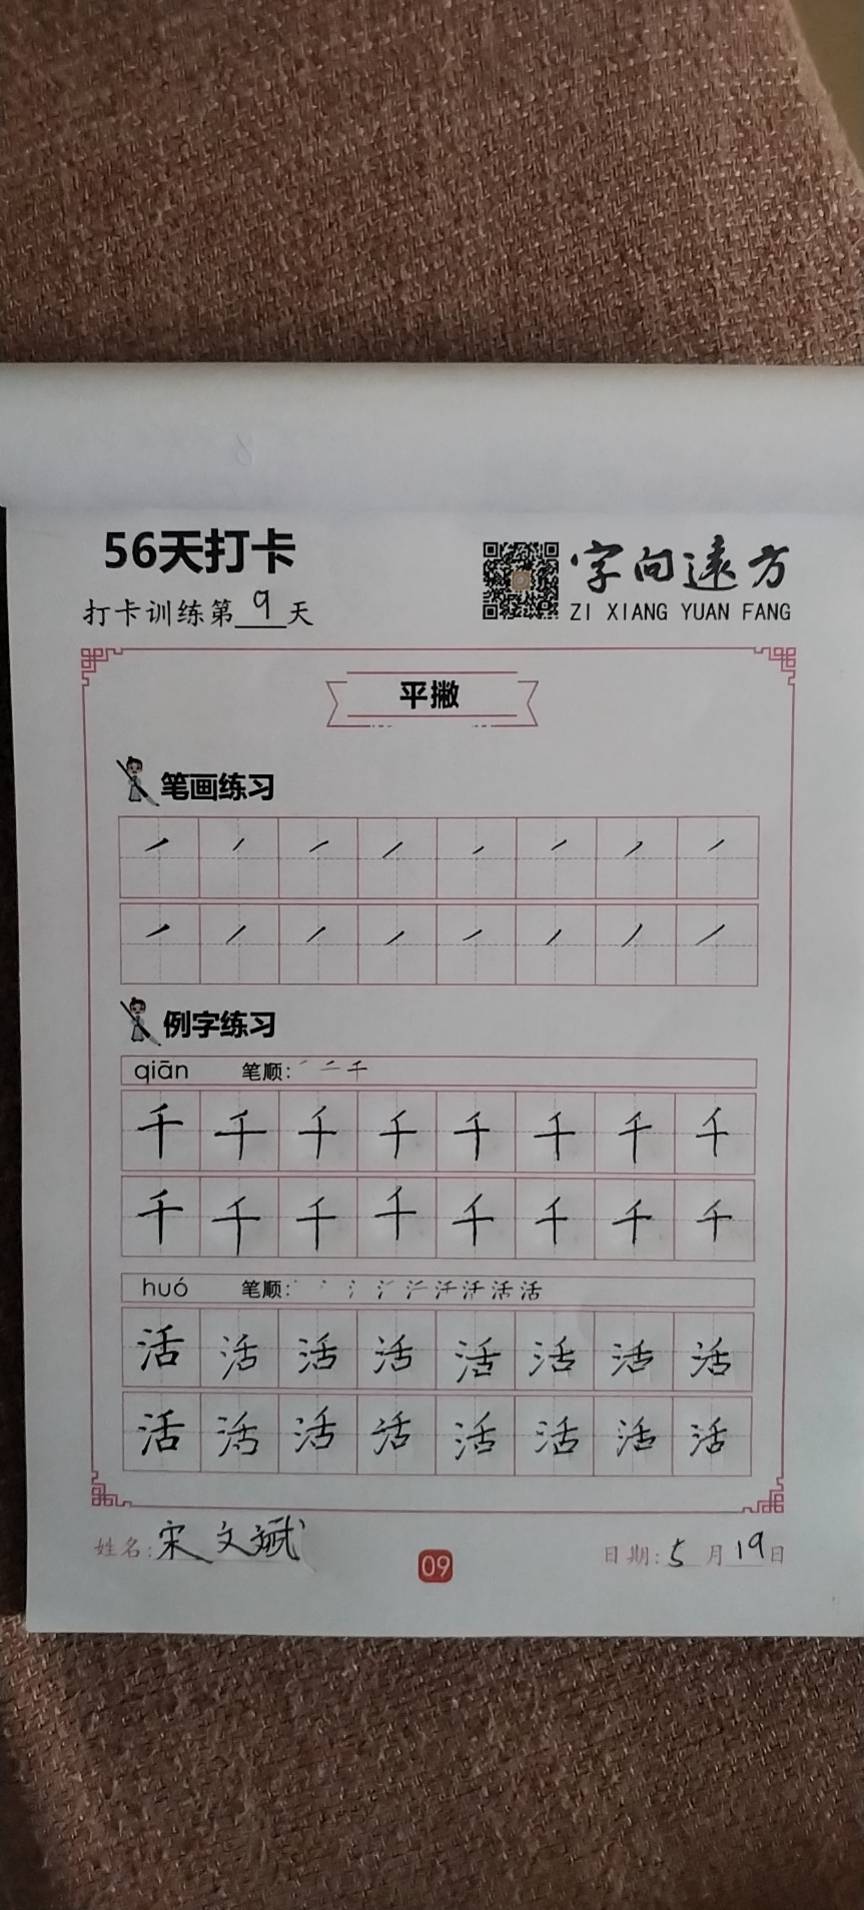 56天打卡
字向遠方
打卡训练第9天
ZI XIANG YUAN FANG
平撇
笔画练习
例字练习
qiān 笔顺: ㇒ 二 千
千 千 千 千 千 千 千 千
千 千 千 千 千 千 千 千
huó 笔顺:
活 活 活 活 活 活 活 活
活 活 活 活 活 活 活 活
姓名:宋文斌
09
日期:5月19日